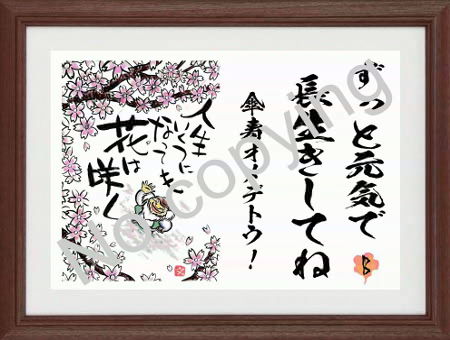 ずっと元気で♪
長生きしてね
傘寿オメデトウ!
人生
いくつに
なっても
花は
咲く
No copying